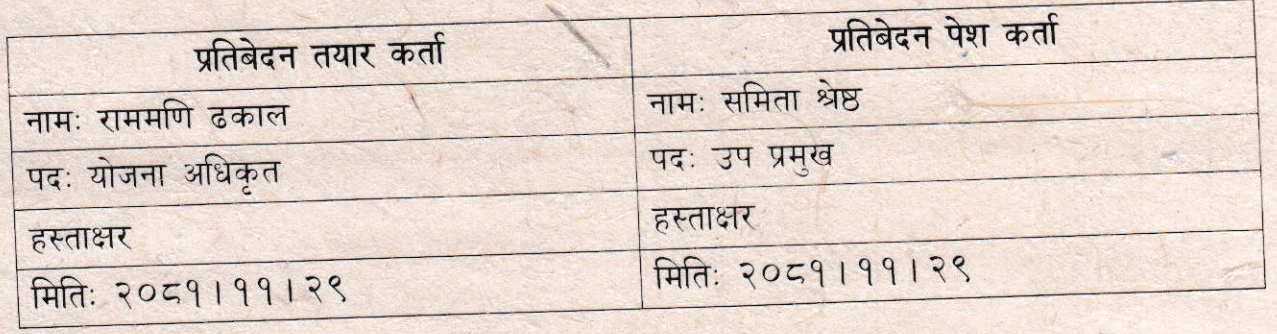 प्रतिबेदन तयार कर्ता प्रतिबेदन पेश कर्ता
नामः राममणि ढकाल नामः समिता श्रेष्ठ
पदः योजना अधिकृत पदः उप प्रमुख
हस्ताक्षर हस्ताक्षर
मितिः २०८१।११।२९ मितिः २०८१।११।२९